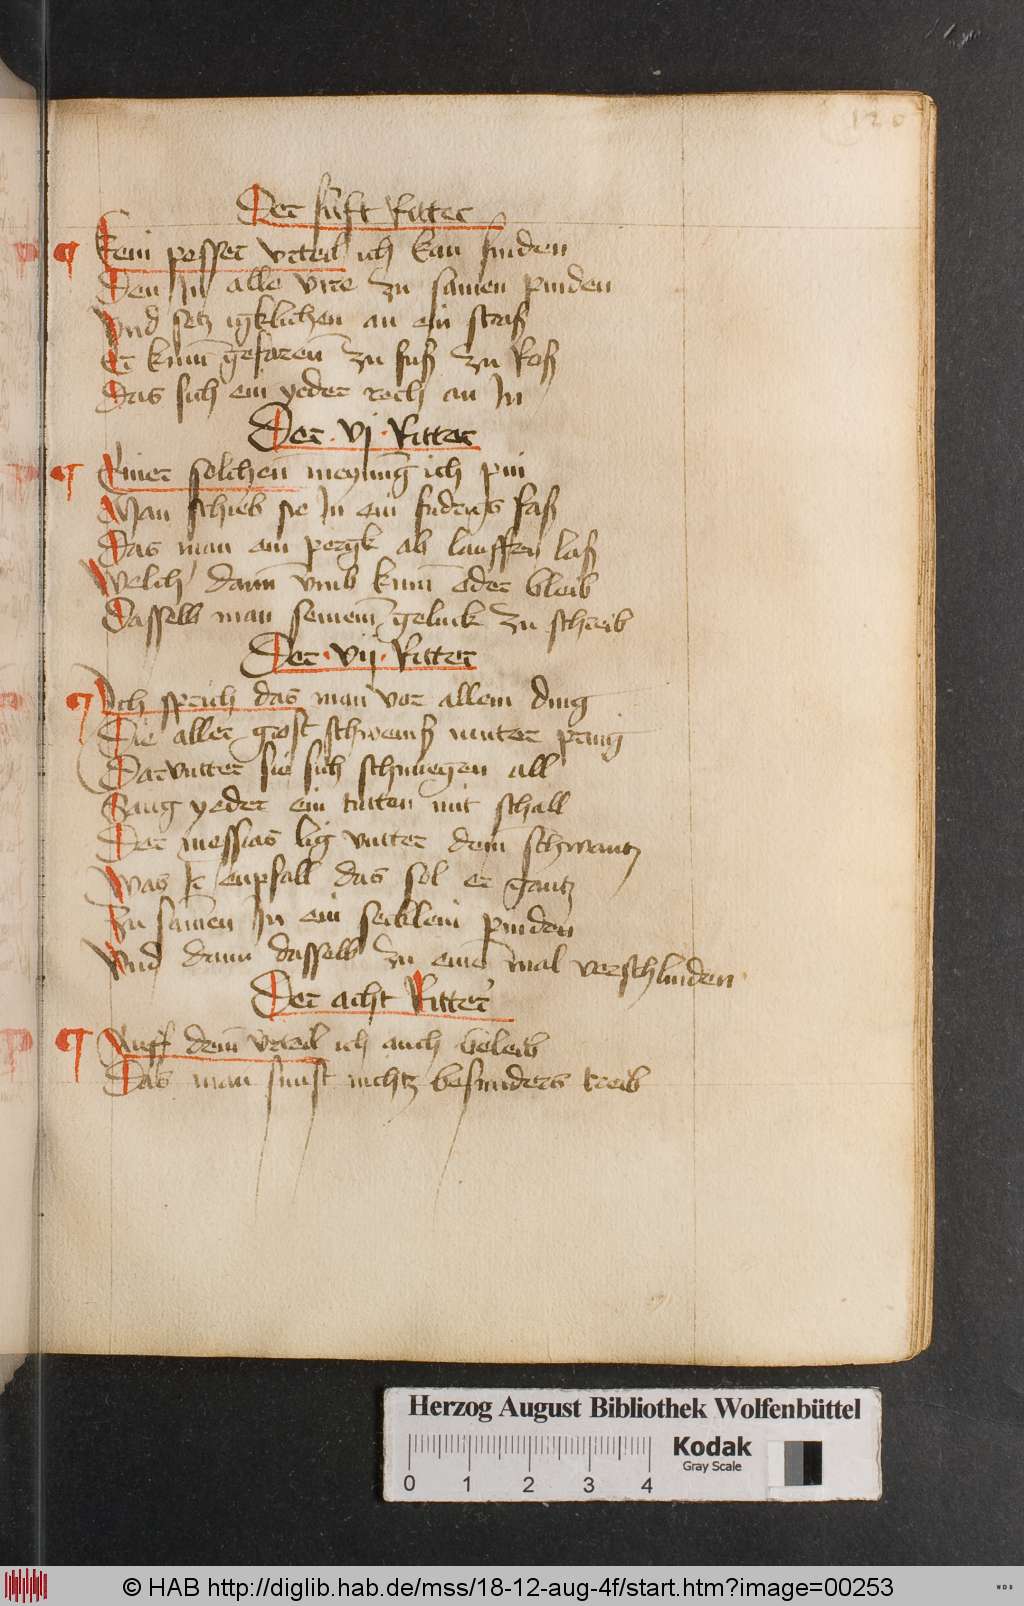 120
Der funft Ritter
Kein pesser vrteil ich kan finden
Den In alle vire zu samen pinden
Vnd setz igklichen an ein straß
Er kum̄ gefaren̄ zu fuß zu Roß
Das sich ein yeder rech an In
Der · vj · Ritter
Einer solchen meynung ich pin
Man schieb sie In ein fudrigs faß
Das man ein pergk ab lauffen laß
Welch dann vmb kum̄ oder bleib
Dasselb man seinem geluck zu schreib
Der · vij · Ritter
Ich sprich das man vor allem ding
Die aller grost schweinß mutter pring
Darvntter sie sich schmiegen all
Saug yeder ein tutten mit schall
Der messias lig vntter dem schwantz
Was Ir enpfall das sol er gantz
Zu samen In ein secklein pinden
Vnd dann dasselb zu einē mal verschlinden
Der acht Ritter
Auff dem vrteil ich auch beleib
Das man sunst nichtz besunders treib
Herzog August Bibliothek Wolfenbüttel
Kodak
Gray Scale
0 1 2 3 4
© HAB http://diglib.hab.de/mss/18-12-aug-4f/start.htm?image=00253